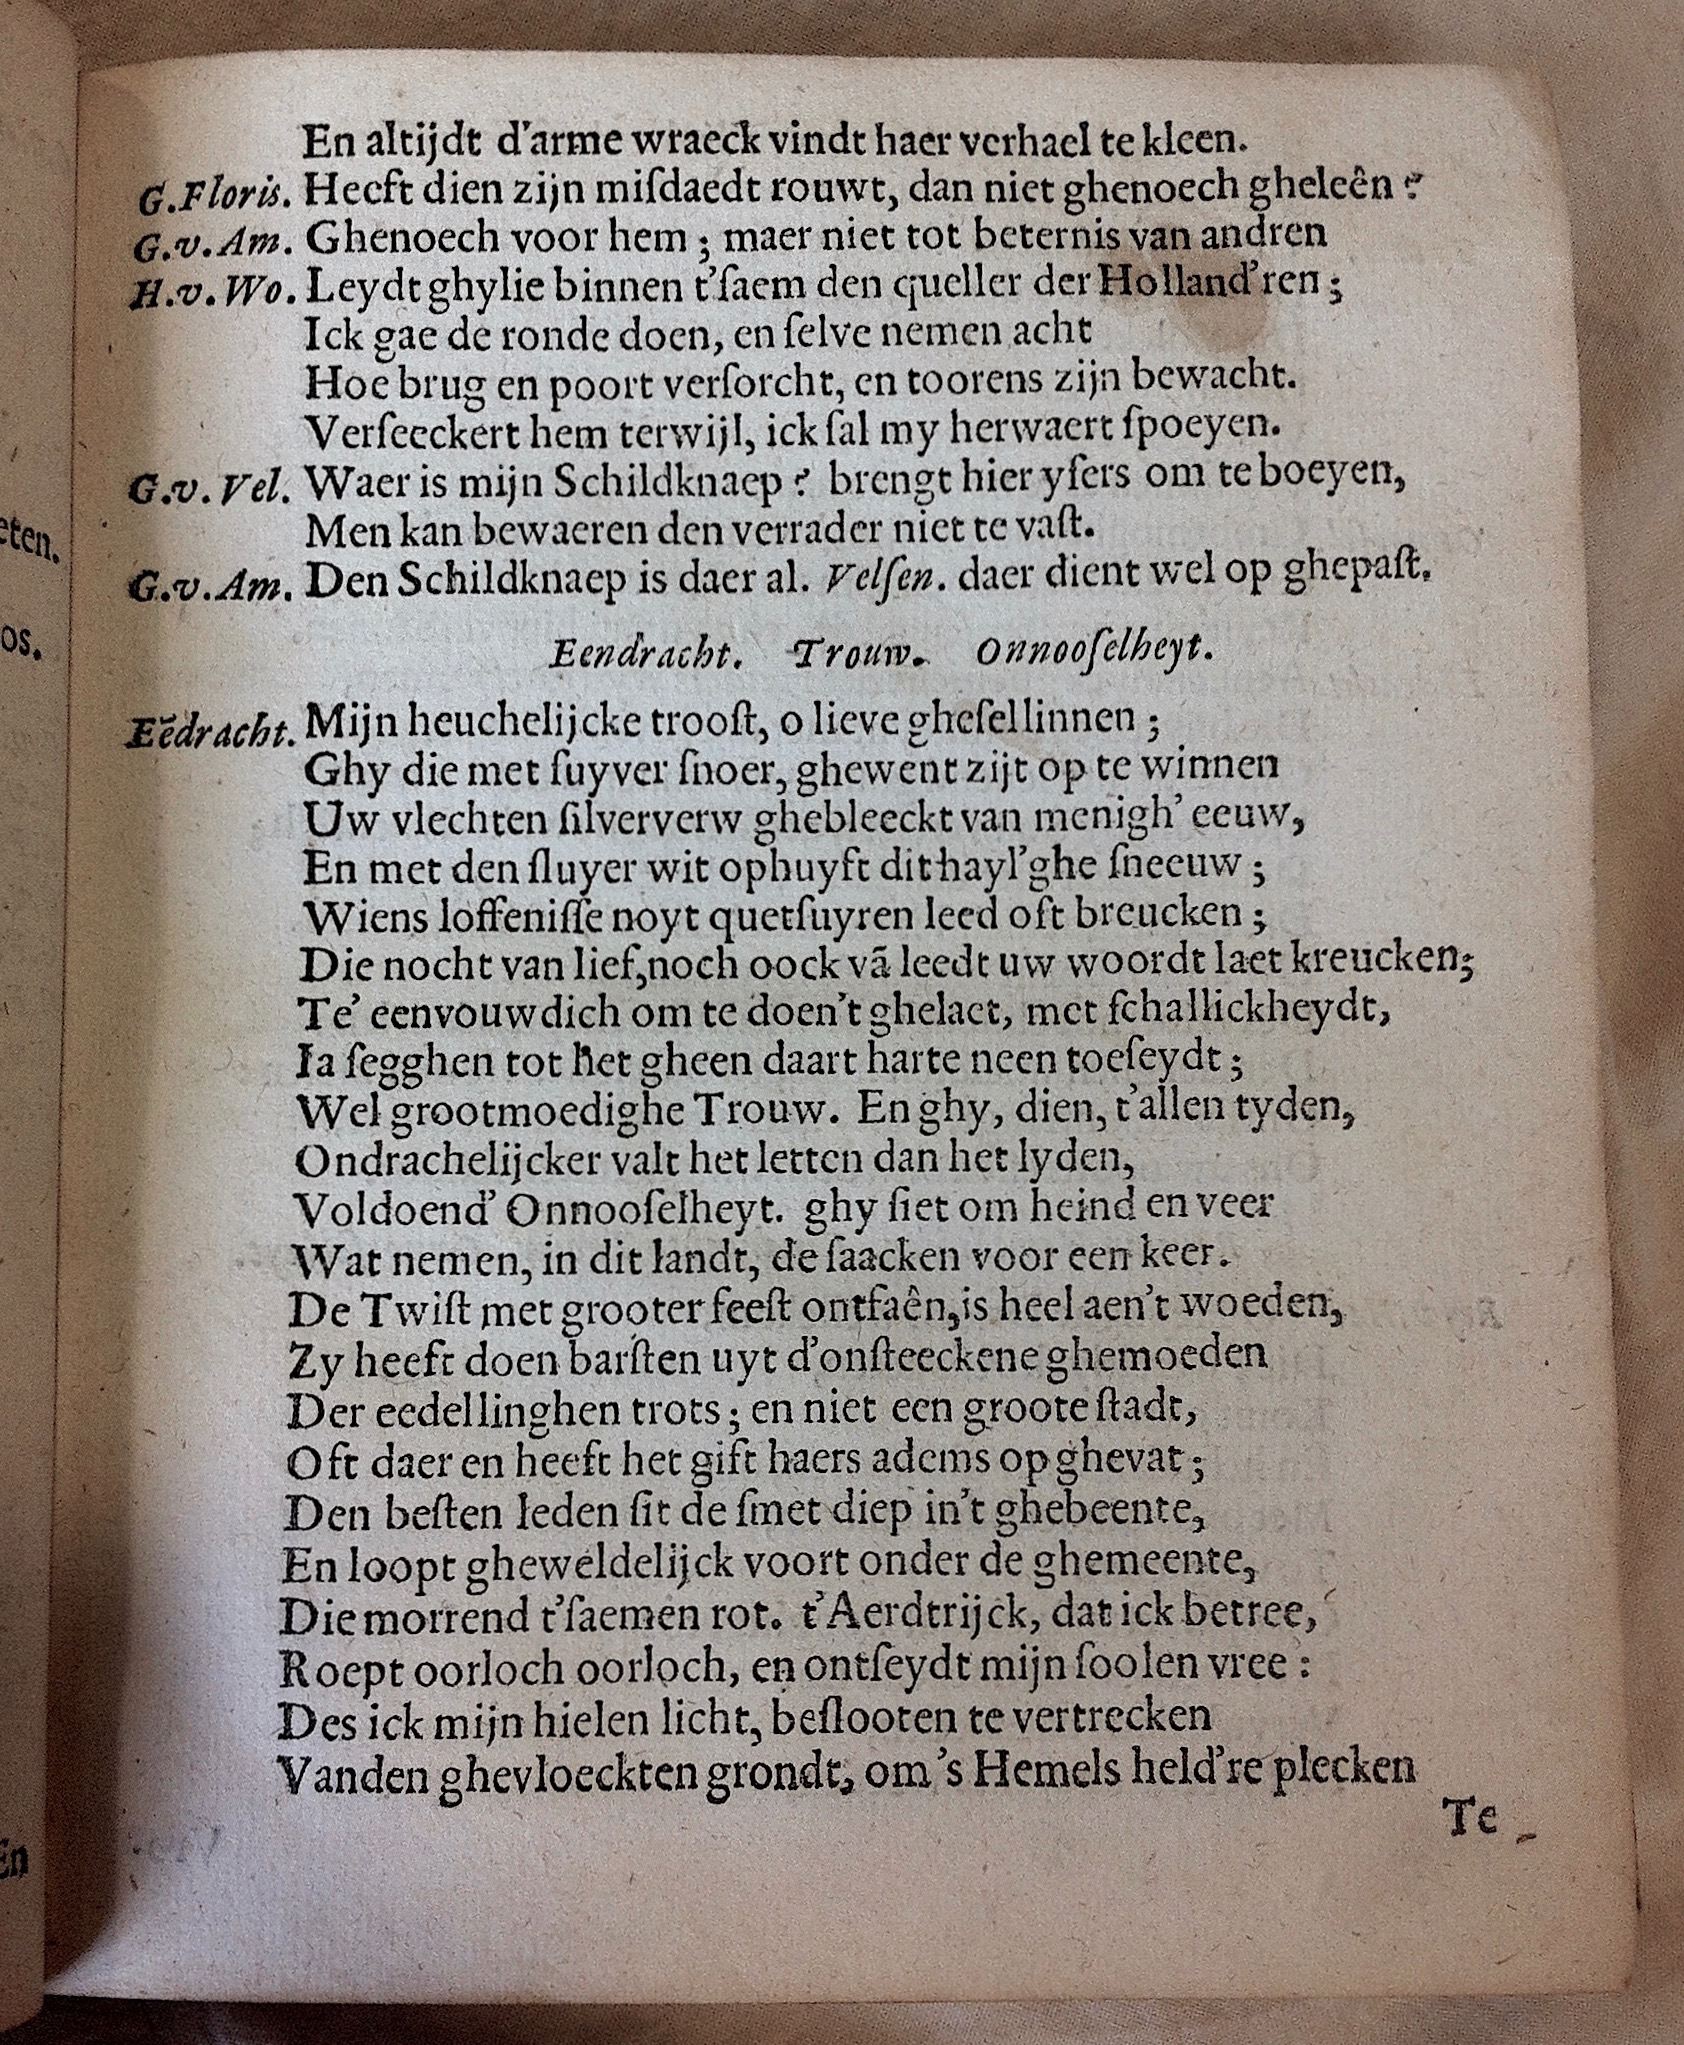 En altijdt d'arme wraeck vindt haer verhael te kleen.
G.Floris. Heeft dien zijn miſdaedt rouwt, dan niet ghenoech gheleên?
G.v.Am. Ghenoech voor hem; maer niet tot beternis van andren
H.v.Wo. Leydt ghylie binnen t'ſaem den queller der Holland'ren;
Ick gae de ronde doen, en ſelve nemen acht
Hoe brug en poort verſorcht, en toorens zijn bewacht.
Verſeeckert hem terwijl, ick ſal my herwaert ſpoeyen.
G.v. Vel. Waer is mijn Schildknaep? brengt hier yſers om te boeyen,
Men kan bewaeren den verrader niet te vaſt.
G.v.Am. Den Schildknaep is daer al. Velſen. daer dient wel op ghepaſt.
Eendracht. Trouw. Onnooſelheyt.
Eēdracht. Mijn heuchelijcke trooſt, o lieve gheſellinnen;
Ghy die met ſuyver ſnoer, ghewent zijt op te winnen
Uw vlechten ſilververw ghebleeckt van menigh' eeuw,
En met den ſluyer wit ophuyft dit hayl'ghe ſneeuw;
Wiens loffeniſſe noyt quetſuyren leed oft breucken;
Die nocht van lief, noch oock vā leedt uw woordt laet kreucken;
Te' eenvouwdich om te doen't ghelaet, met ſchallickheydt,
Ia ſegghen tot het gheen daart harte neen toeſeydt;
Wel grootmoedighe Trouw. En ghy, dien, t'allen tyden,
Ondrachelijcker valt het letten dan het lyden,
Voldoend' Onnooſelheyt. ghy ſiet om heind en veer
Wat nemen, in dit landt, de ſaacken voor een keer.
De Twiſt met grooter feeſt ontfaên, is heel aen't woeden,
Zy heeft doen barſten uyt d'onſteeckene ghemoeden
Der eedellinghen trots; en niet een groote ſtadt,
Oft daer en heeft het gift haers adems op ghevat;
Den beſten leden ſit de ſmet diep in't ghebeente,
En loopt gheweldelijck voort onder de ghemeente,
Die morrend t'ſaemen rot. t'Aerdtrijck, dat ick betree,
Roept oorloch oorloch, en ontſeydt mijn ſoolen vree:
Des ick mijn hielen licht, beſlooten te vertrecken
Vanden ghevloeckten grondt, om 's Hemels held're plecken
Te
eten.
os.
En